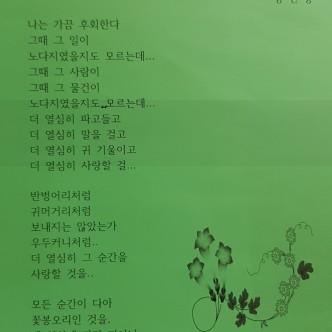 나는 가끔 후회한다
그때 그 일이
노다지였을지도 모르는데...
그때 그 사람이
그때 그 물건이
노다지였을지도 모르는데...
더 열심히 파고들고
더 열심히 말을 걸고
더 열심히 귀 기울이고
더 열심히 사랑할 걸...
반벙어리처럼
귀머거리처럼
보내지는 않았는가
우두커니처럼..
더 열심히 그 순간을
사랑할 것을..
모든 순간이 다아
꽃봉오리인 것을,